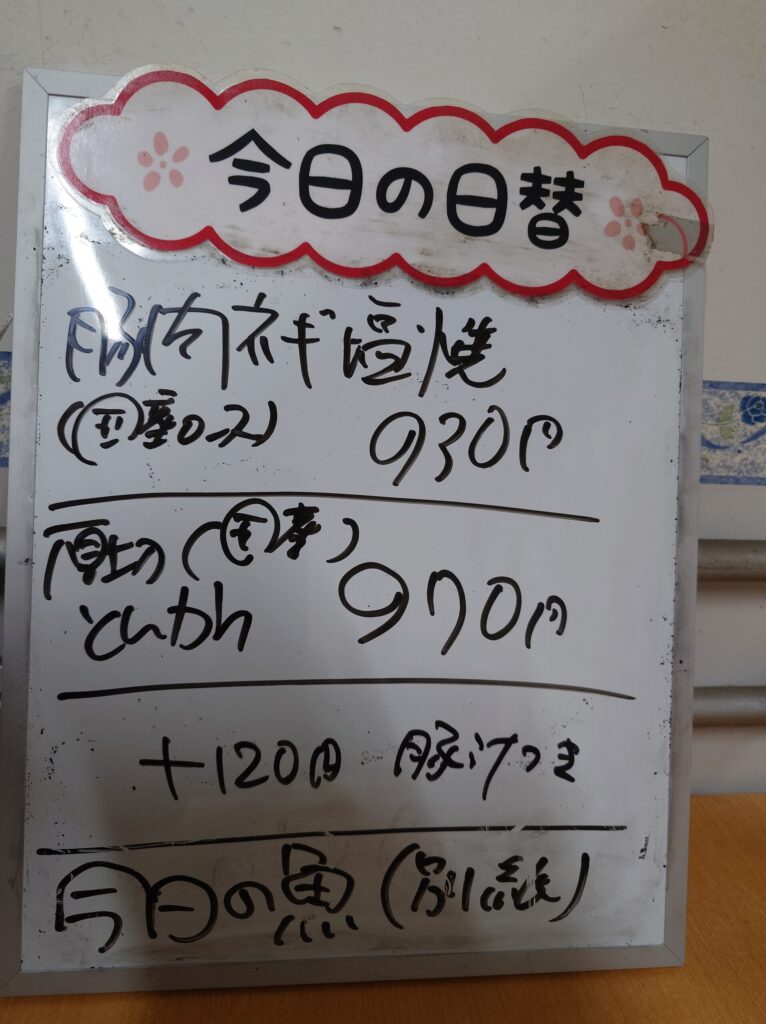 今日の日替
豚肉ネギ塩焼
(国産ロース) 930円
厚切(国産)
とんかつ 970円
+120円 豚汁つき
今日の魚(別紙)